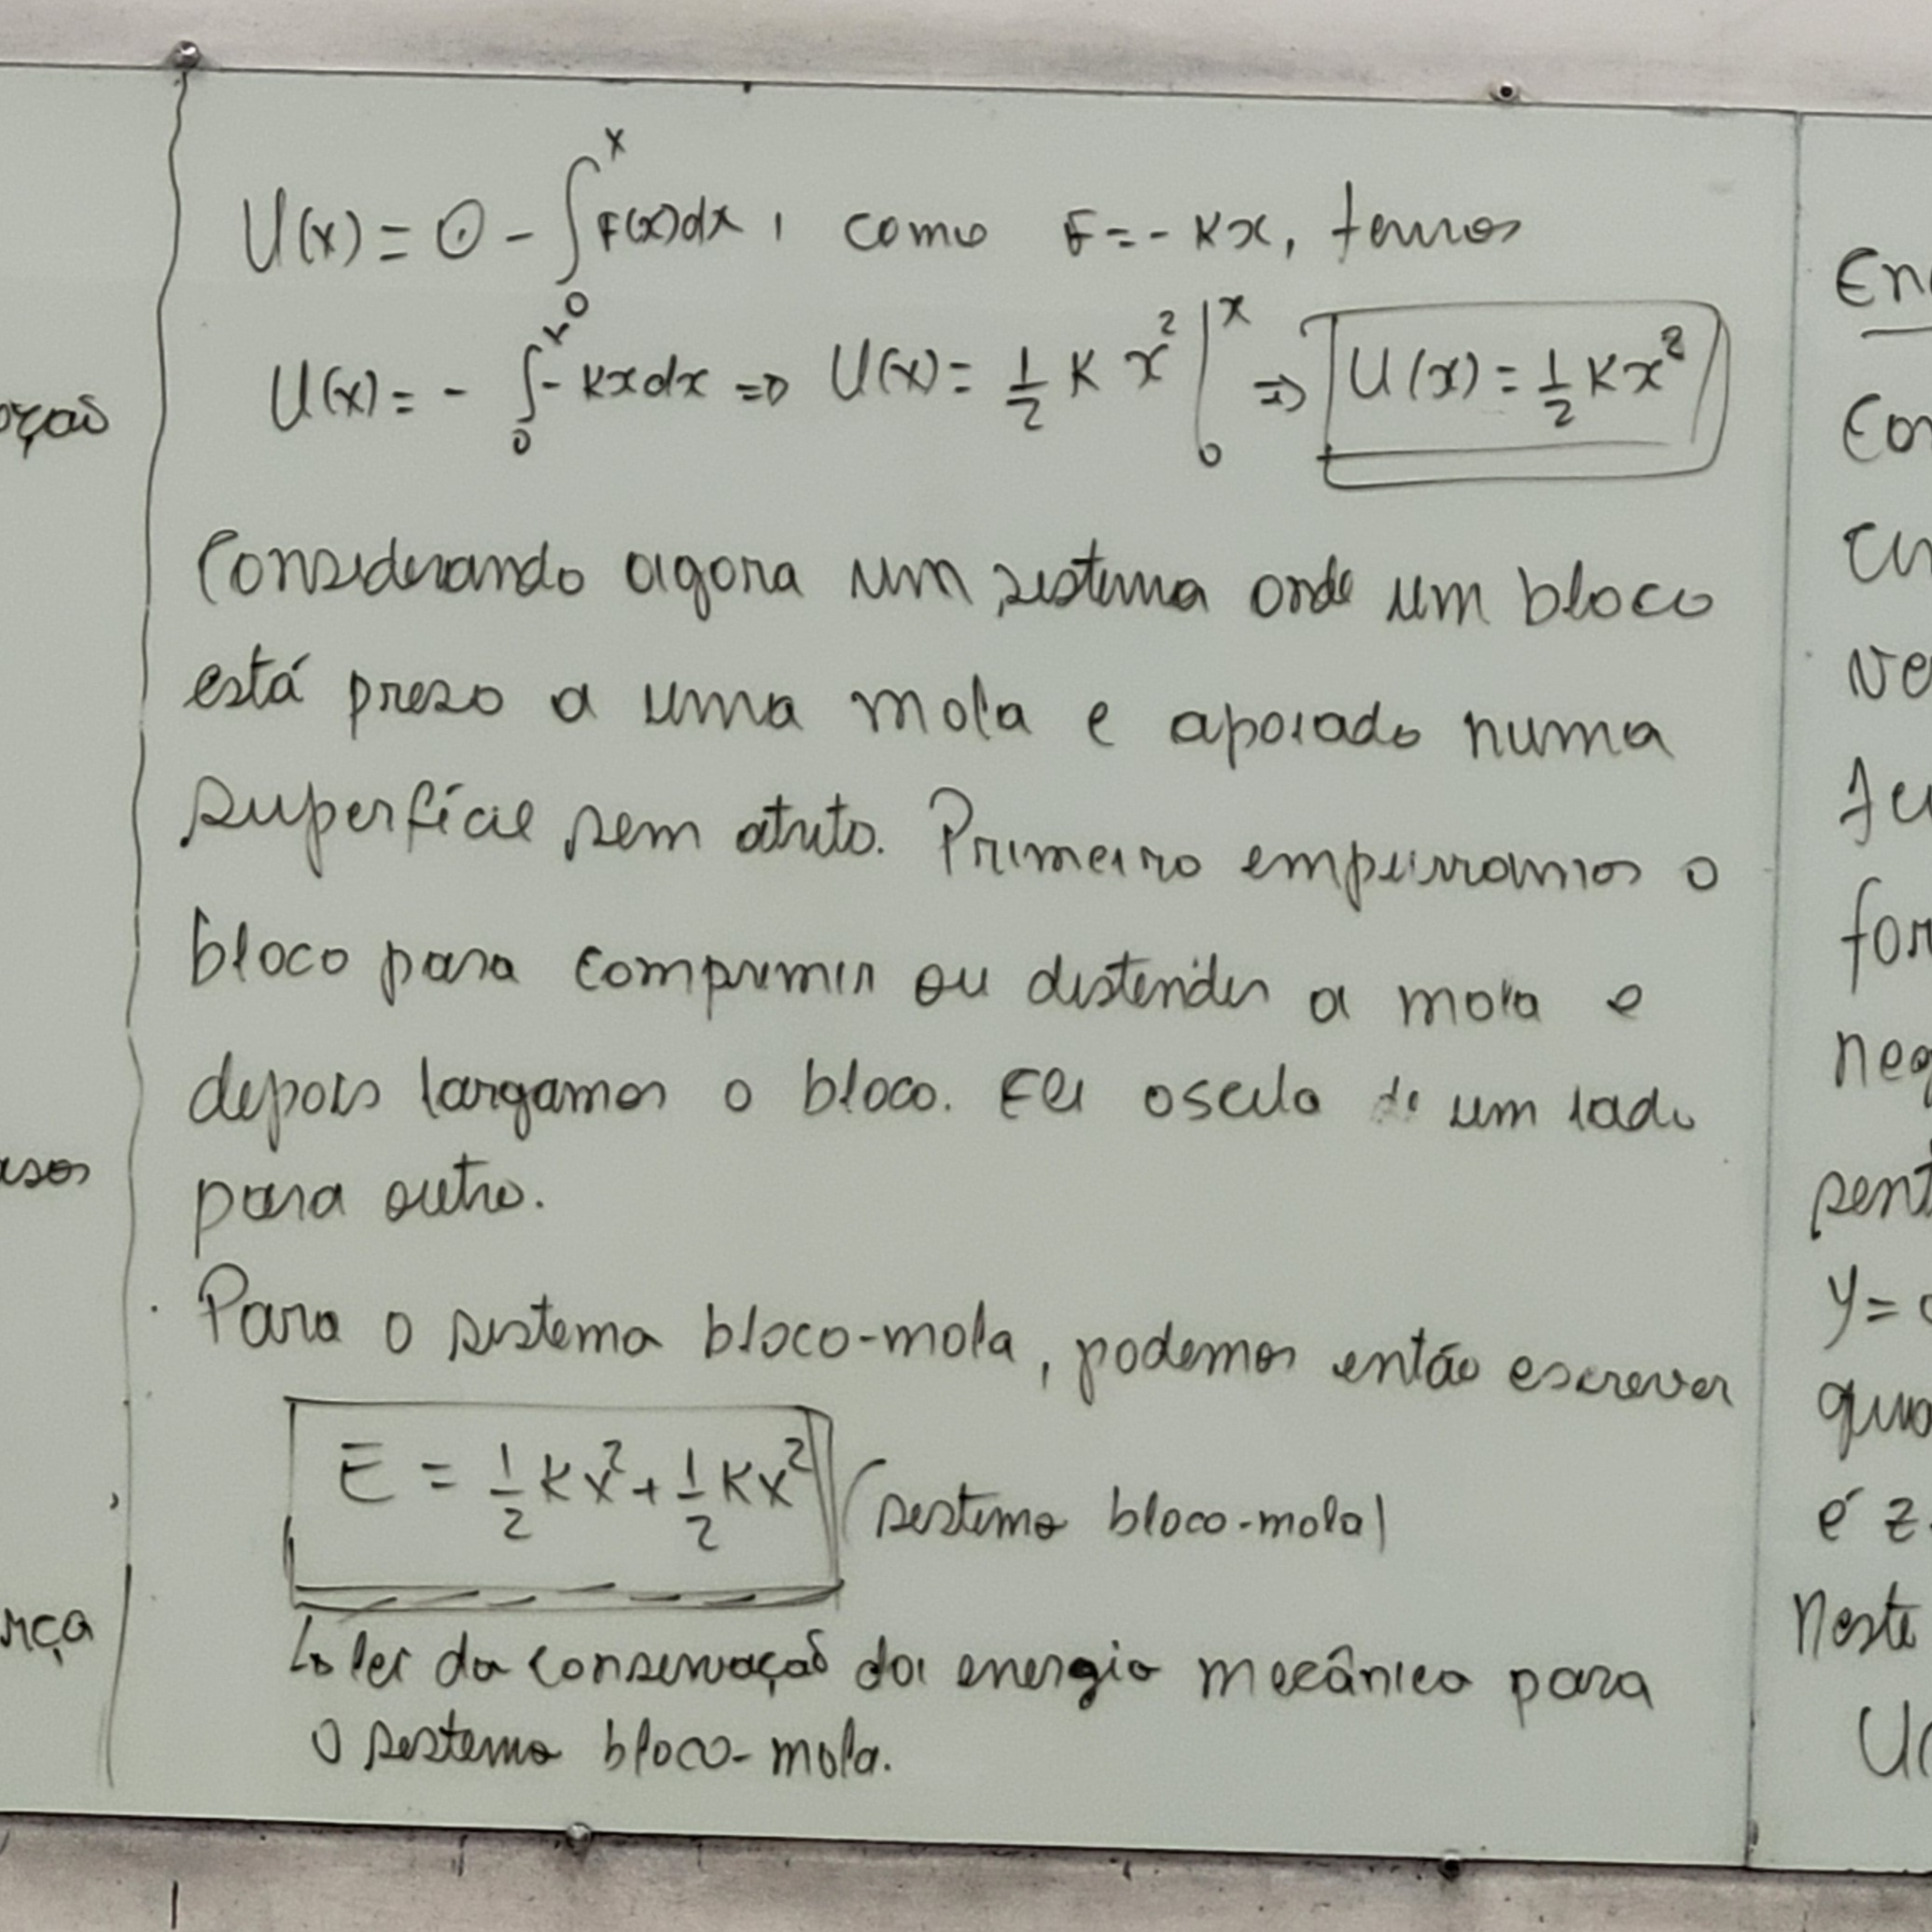 U(x) = 0 - ∫₀ˣ F(x)dx, como F = - Kx, temos
U(x) = - ∫₀ˣ - Kxdx ⇒ U(x) = 1/2 K x² |₀ˣ ⇒ U(x) = 1/2 Kx²
Considerando agora um sistema onde um bloco
está preso a uma mola e apoiado numa
superfície sem atrito. Primeiro empurramos o
bloco para comprimir ou distender a mola e
depois largamos o bloco. Ele oscila de um lado
para outro.
Para o sistema bloco-mola, podemos então escrever
E = 1/2 Kx² + 1/2 Kx² (sistema bloco-mola)
↳ lei da conservação da energia mecânica para
o sistema bloco-mola.
orção
asos
rça
En
Con
ve
for
neg
sent
y=
é z
Neste
U(